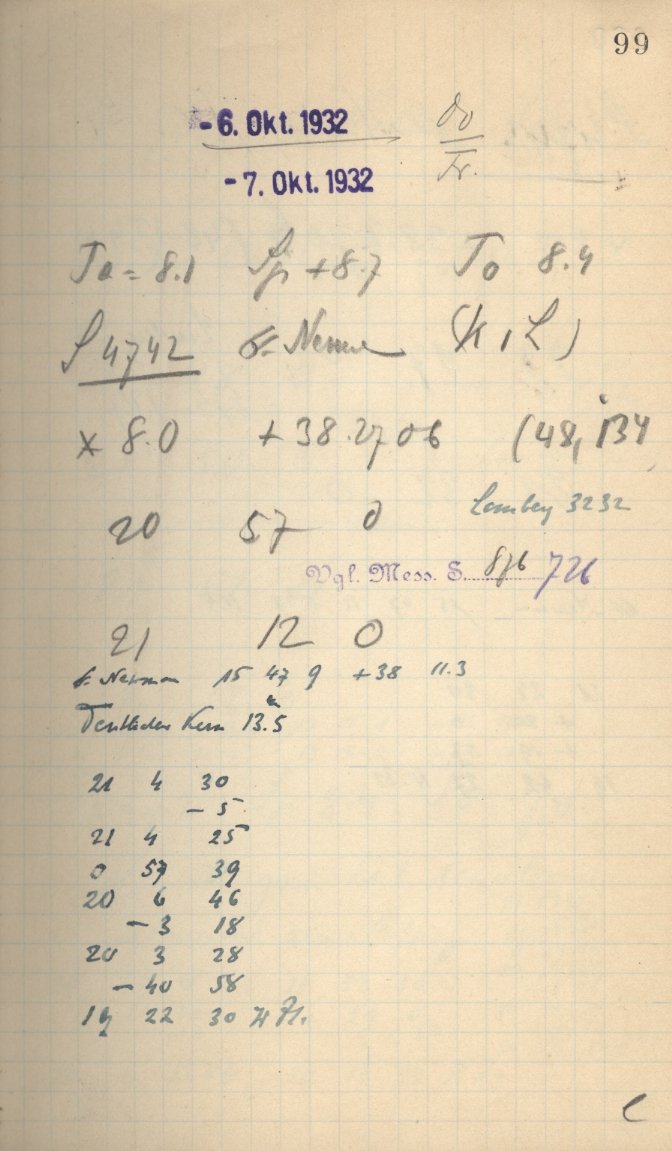 99
- 6. Okt. 1932 Do
- 7. Okt. 1932 Fr.
Ta = 8.1 Sp + 8.7 To 8.4
S 4742 (K, L)
x 8.0 + 38.27 06 (48, 134
20 57 0 3232
Vgl. Mess. S. 876 726
21 12 0
15 47 9 +38 11.3
Kern 13.5
21 4 30
- 5
21 4 25
0 57 39
20 6 46
- 3 18
20 3 28
- 40 58
19 22 30